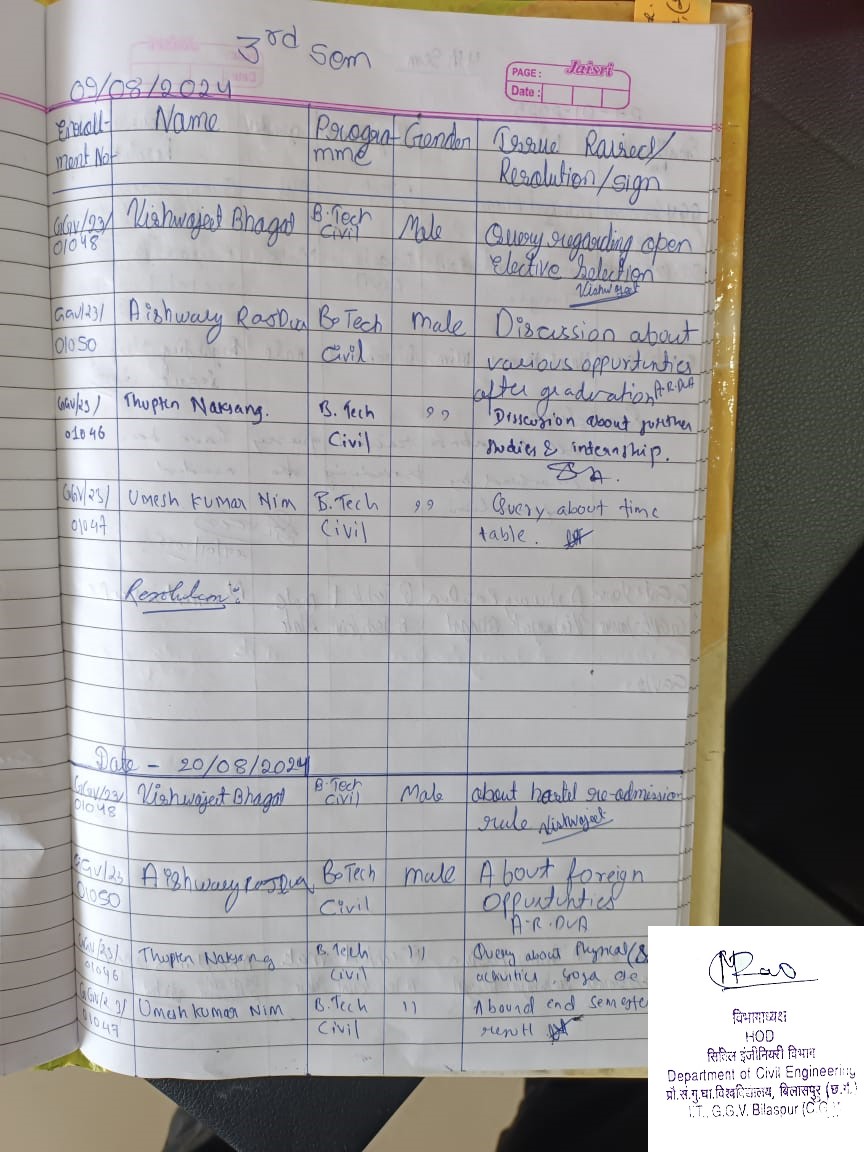 3rd Sem
PAGE: Jaisri
Date:
09/08/2024
Enroll- Name Progra- Gender Issue Raised/
ment No- mme Resolution/sign
GGV/23/ Vishwajeet Bhagat B.Tech Male Query regarding open
01048 Civil elective Selection
Vishwajeet
GGV/23/ Aishwary Raj Dua B.Tech Male Discussion about
01050 Civil various oppurtunties
after graduation A.R.DUA
GGV/23/ Thupten Naksang. B.Tech ,, Disscusion about further
01046 Civil studies & internship.
GGV/23/ Umesh Kumar Nim B.Tech ,, Query about time
01047 Civil table.
Resolution:-
Date - 20/08/2024
GGV/23/ Vishwajeet Bhagat B.Tech Male about hostel re-admission
01048 Civil rule Vishwajeet
GGV/23 Aishwary Raj Dua B.Tech Male About foreign
01050 Civil oppurtunties
A.R.DUA
GGV/23/ Thupten Naksang B.Tech 11 Query about Physical
01046 Civil activities, Yoga
GGV/23/ Umesh Kumar Nim B.Tech 11 Abound end semeste
01047 Civil result
Rao
विभागाध्यक्ष
HOD
सिविल इंजीनियरी विभाग
Department of Civil Engineering
प्रौ.सं.गु.घा.विश्वविद्यालय, बिलासपुर (छ.ग.)
I.T., G.G.V. Bilaspur (C.G.)